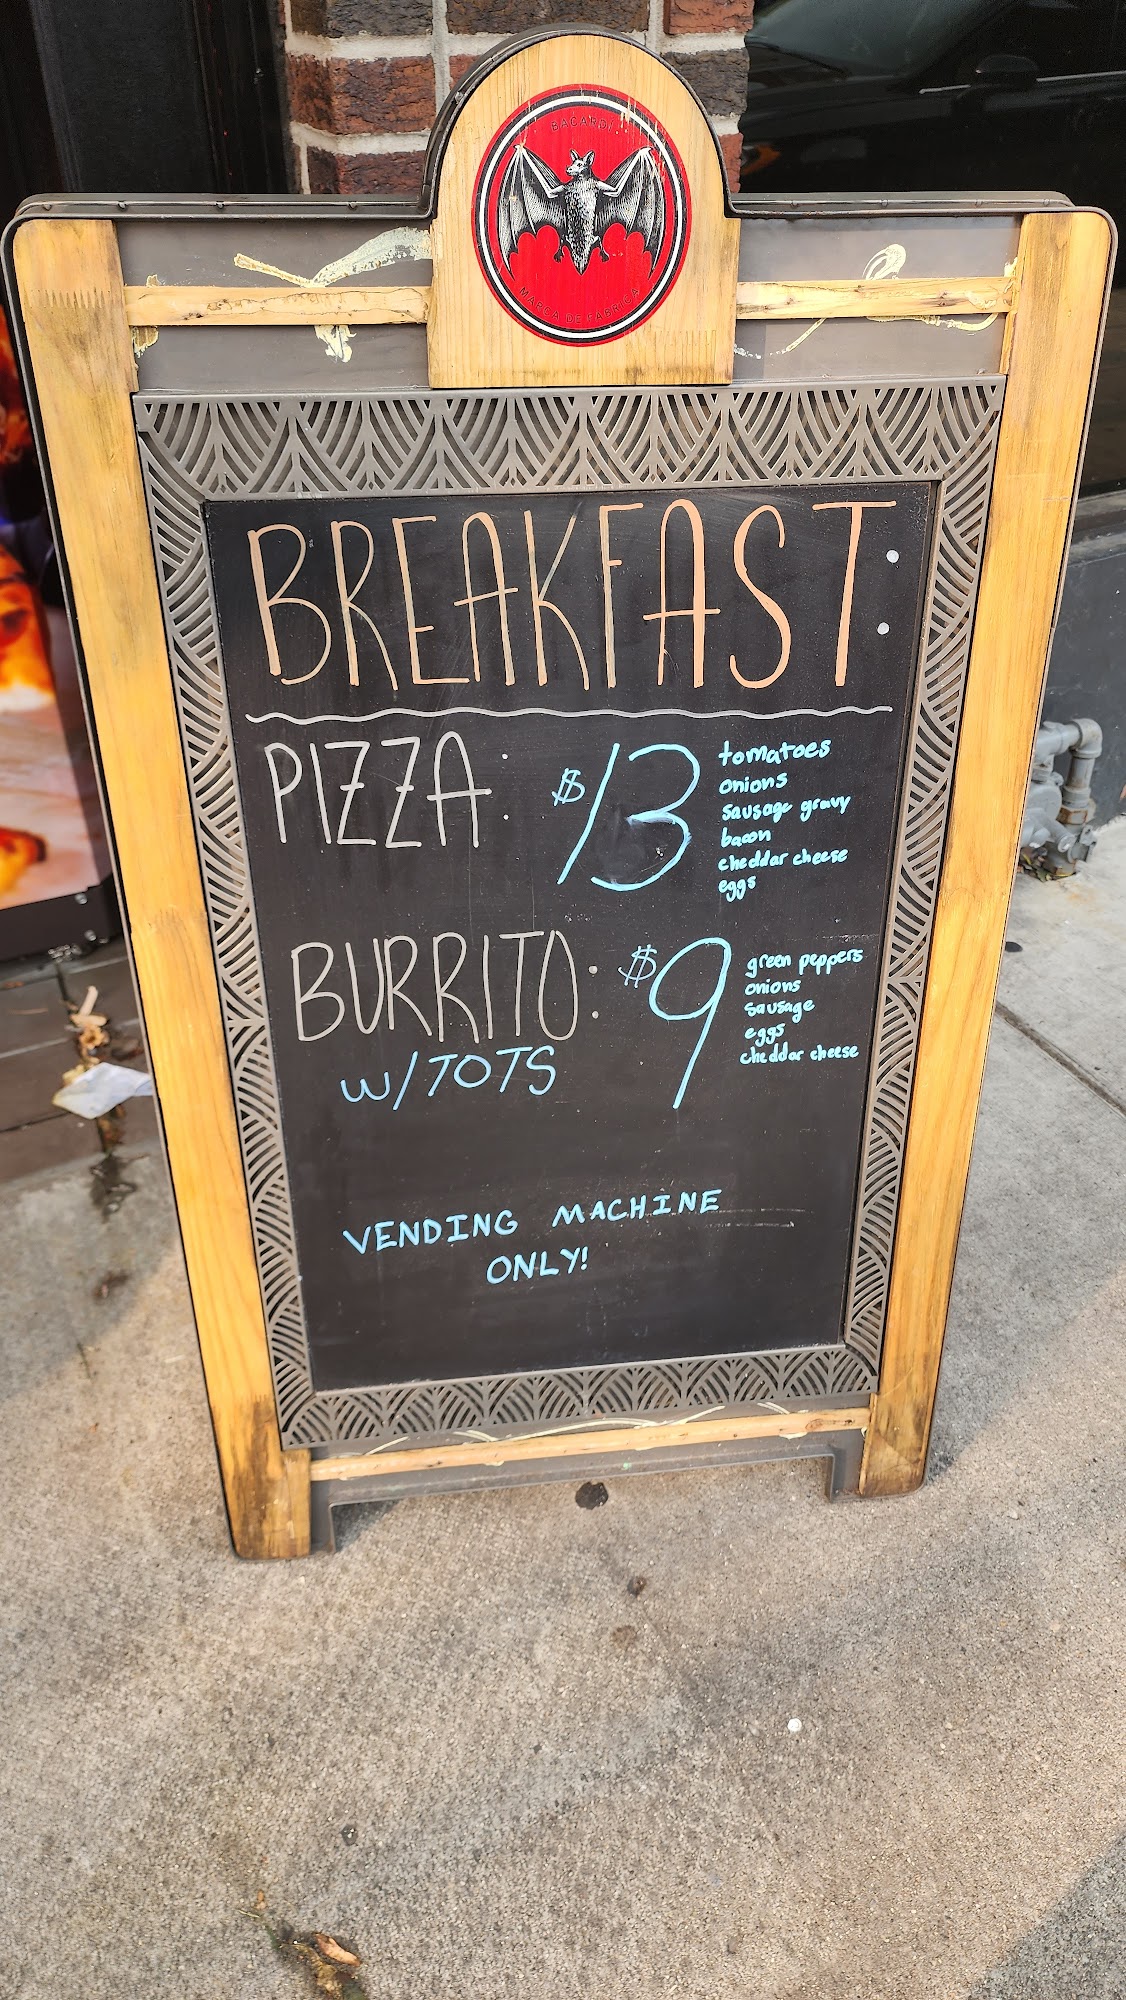 BACARDI
MARCA DE FABRICA
BREAKFAST:
PIZZA: $13
tomatoes
onions
sausage gravy
bacon
cheddar cheese
eggs
BURRITO: $9
W/TOTS
green peppers
onions
sausage
eggs
cheddar cheese
VENDING MACHINE
ONLY!